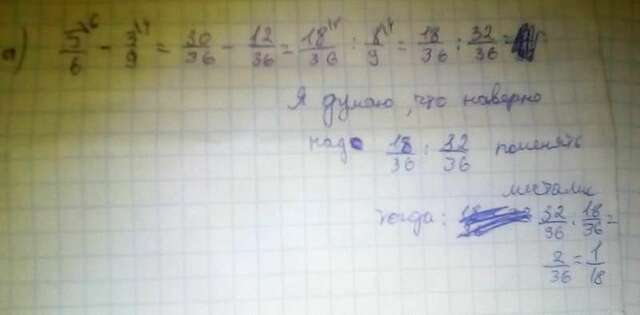 а) 5/6 - 3/9 = 30/36 - 12/36 = 18/36 : 8/9 = 18/36 : 32/36 =
Я думаю, что наверно
надо 18/36 : 32/36 поменять
местами
тогда: 32/36 : 18/36 =
2/36 = 1/18